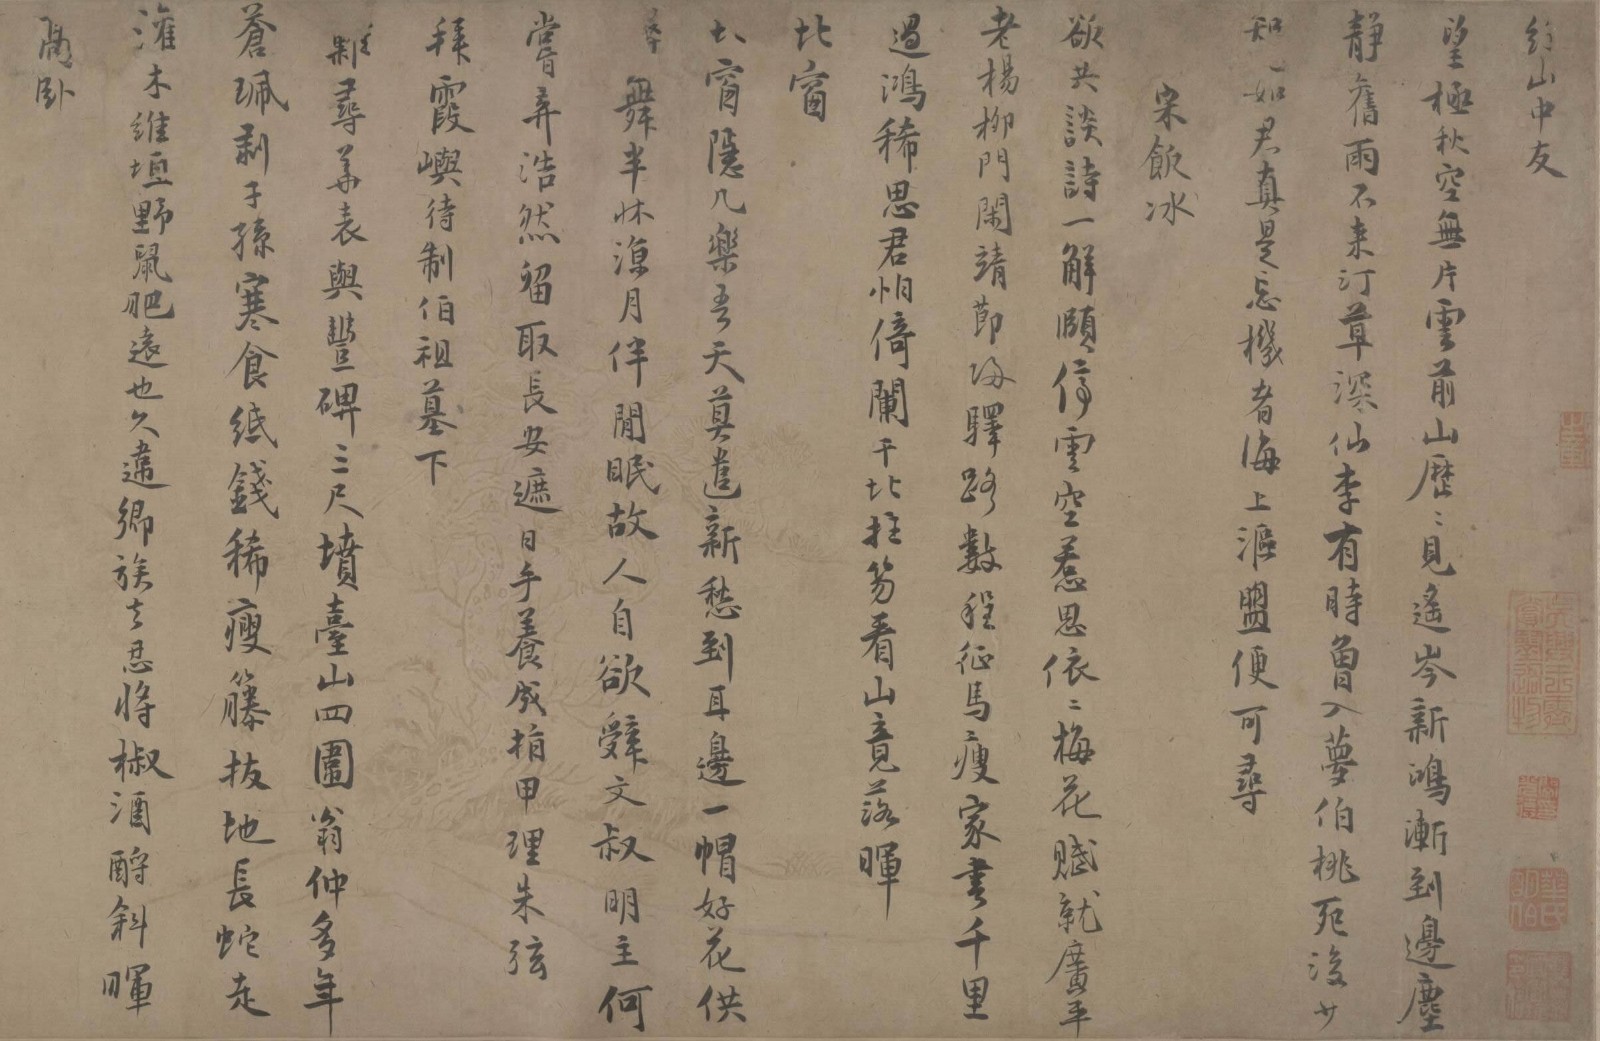 山中友
望極秋空無片雲前山歷〻見遙岑新鴻漸到邊塵
靜舊雨不來汀草深仙李有時曾入夢伯桃死後少
知如君真是忘機者海上漚盟便可尋
宋飲冰
欲共談詩一解頤停雲空惹思依〻梅花賦就廣平
老楊柳門閑靖節歸驛路數程征馬瘦家書千里
過鴻稀思君怕倚闌干北拄笏看山竟落暉
北窗
北窗隱几樂吾天莫遣新愁到耳邊一帽好花供
舞半牀涼月伴閒眠故人自欲舜文叔明主何
嘗弃浩然留取長安遮日手養成指甲理朱弦
拜霞嶼待制伯祖墓下
難尋華表與豐碑三尺墳臺山四圍翁仲多年
蒼珮剥子孫寒食紙錢稀瘦籐拔地長蛇走
灌木維垣野鼠肥遠也久違鄉族去忍將椒酒酹斜暉
卧